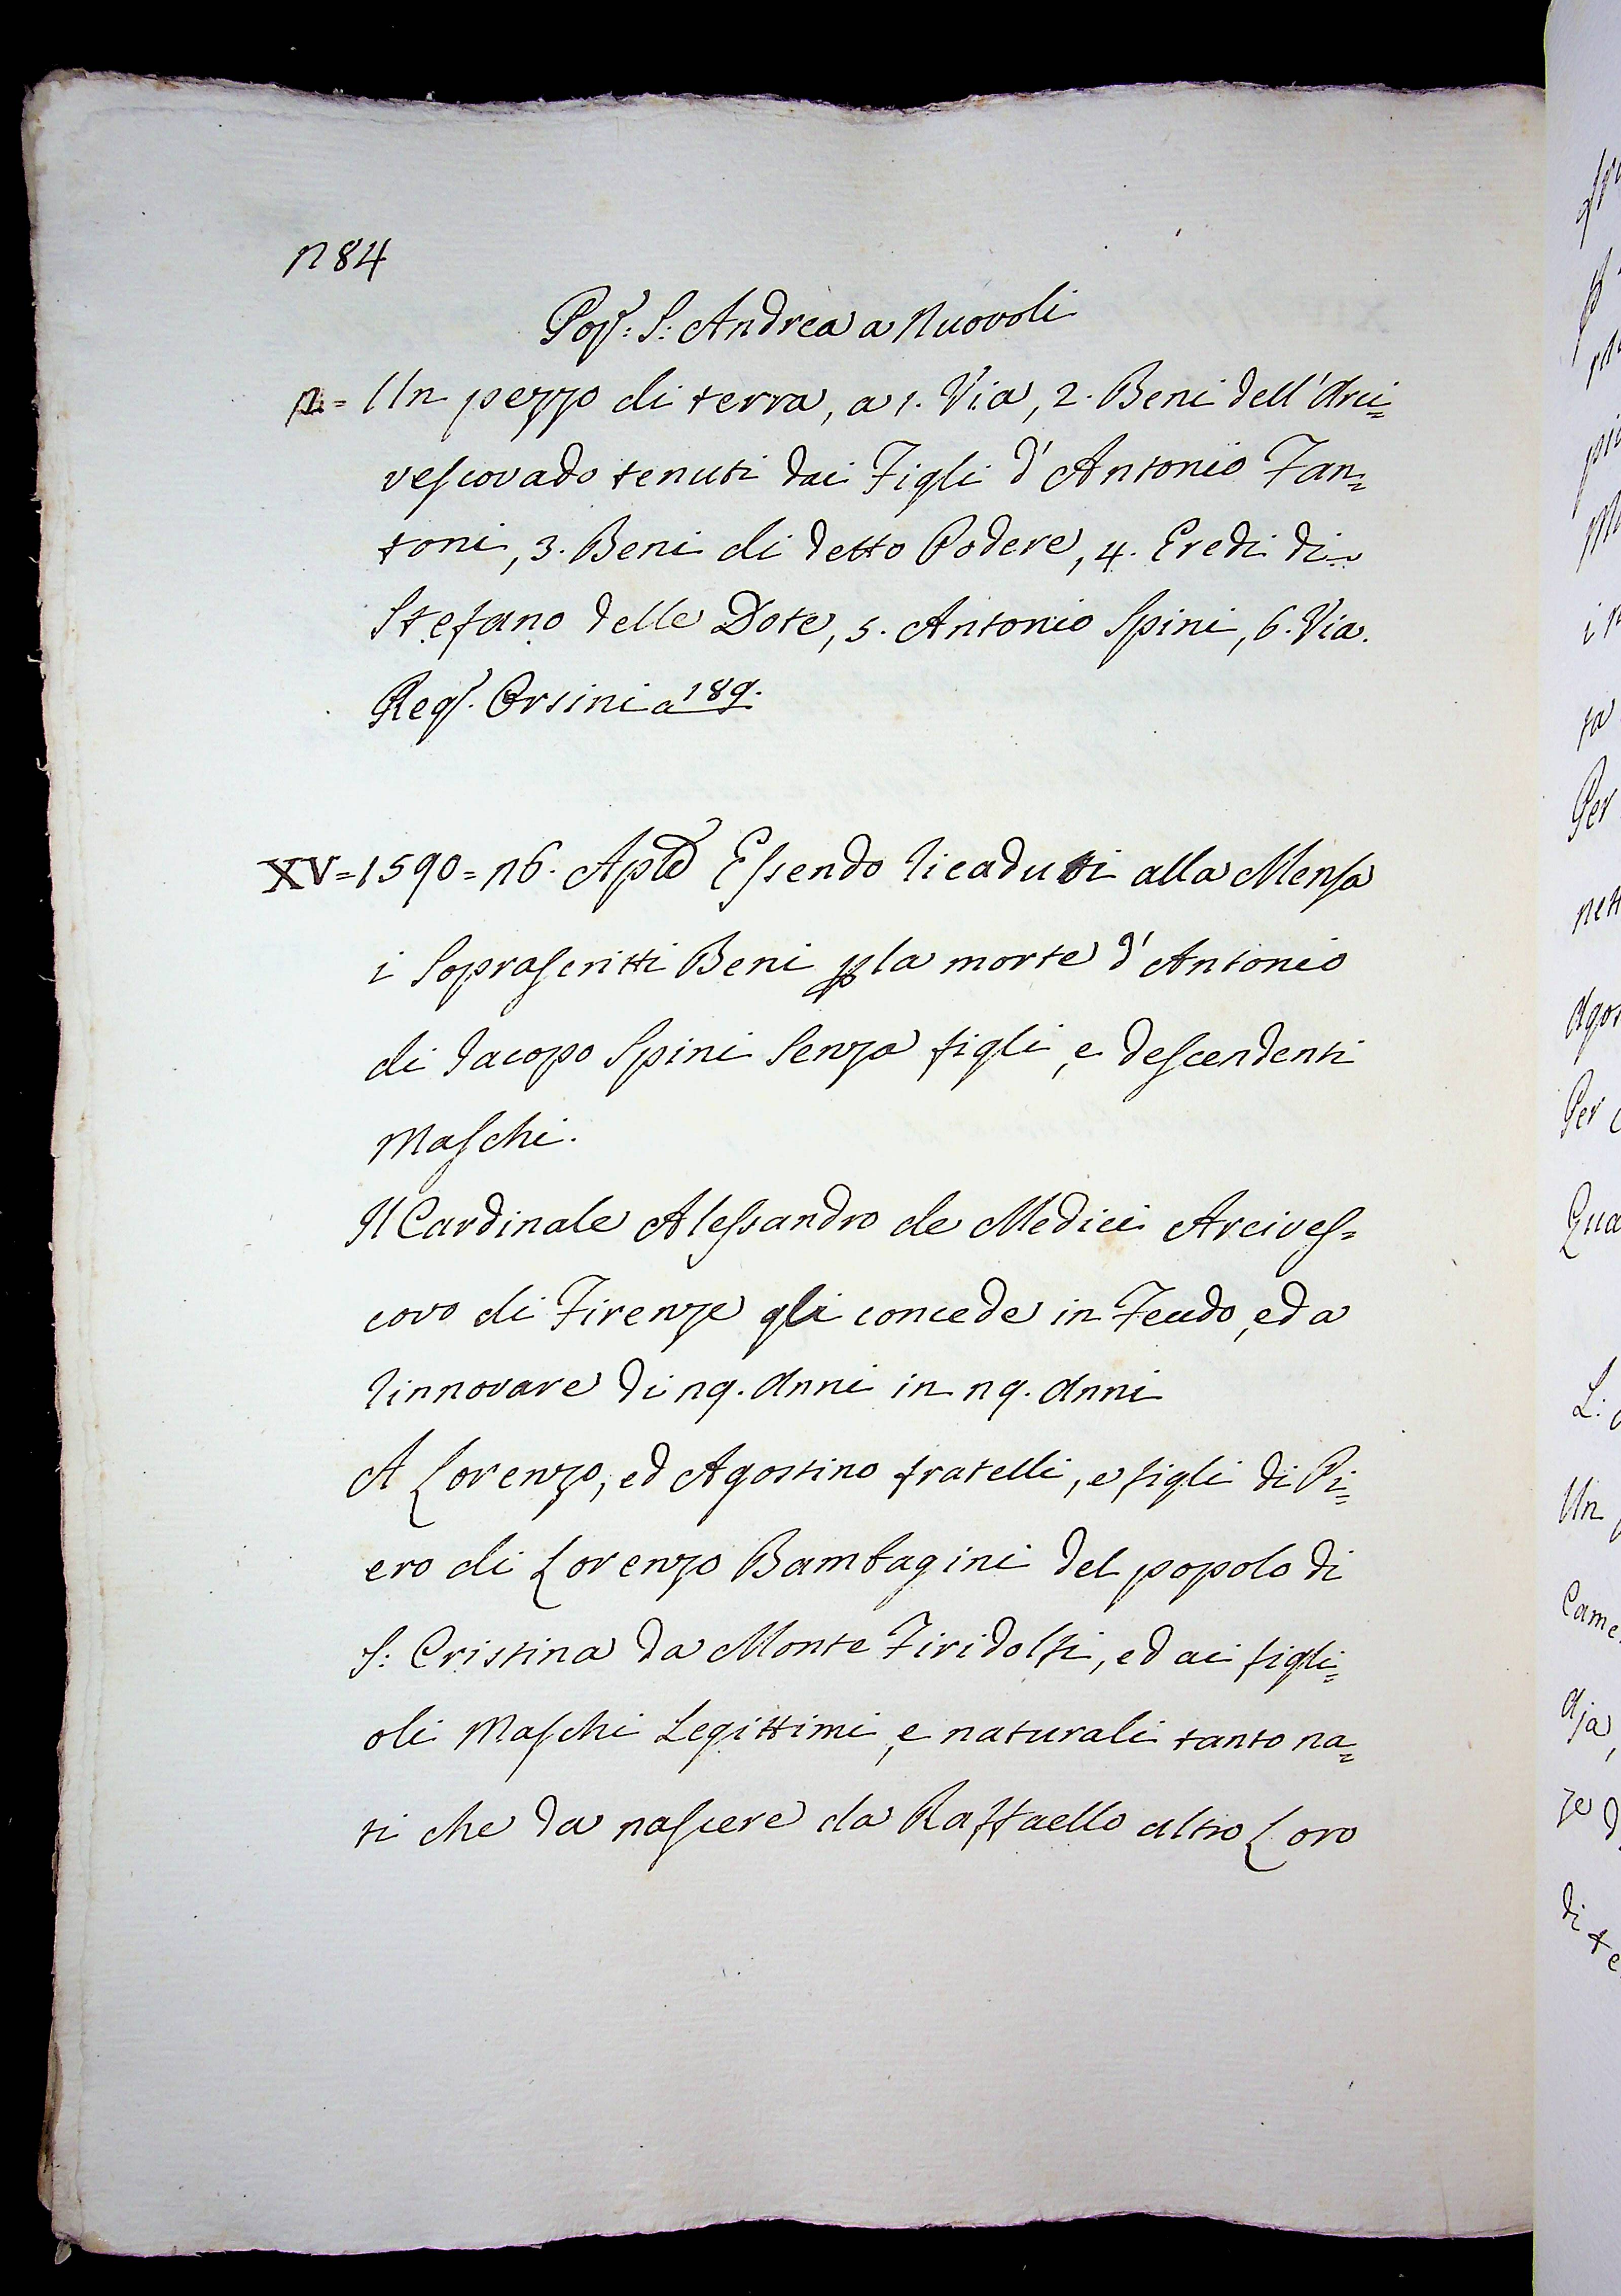 n 84
Pop: S: Andrea a Nuovoli
n = Un pezzo di terra, a 1. Via, 2. Beni dell'Arci=
vescovado tenuti dai Figli d'Antonio Fan=
toni, 3. Beni di detto Podere, 4. Eredi di
Stefano delle Dote, 5. Antonio Spini, 6. Via.
Reg. Orsini a 189.
XV = 1590 = n6. Aple Essendo ricaduti alla Mensa
i Soprascritti Beni p la morte d'Antonio
di Jacopo Spini Senza figli, e descendenti
Maschi.
Il Cardinale Alessandro de Medici Arcives=
covo di Firenze gli concede in Feudo, ed a
rinnovare di n9. Anni in n9. Anni
A Lorenzo, ed Agostino fratelli, e figli di Pi=
ero di Lorenzo Bambagini del popolo di
S: Cristina da Monte Firidolfi, ed ai figli=
oli Maschi Legittimi, e naturali tanto na=
ti che da nascere da Raffaello altro Loro